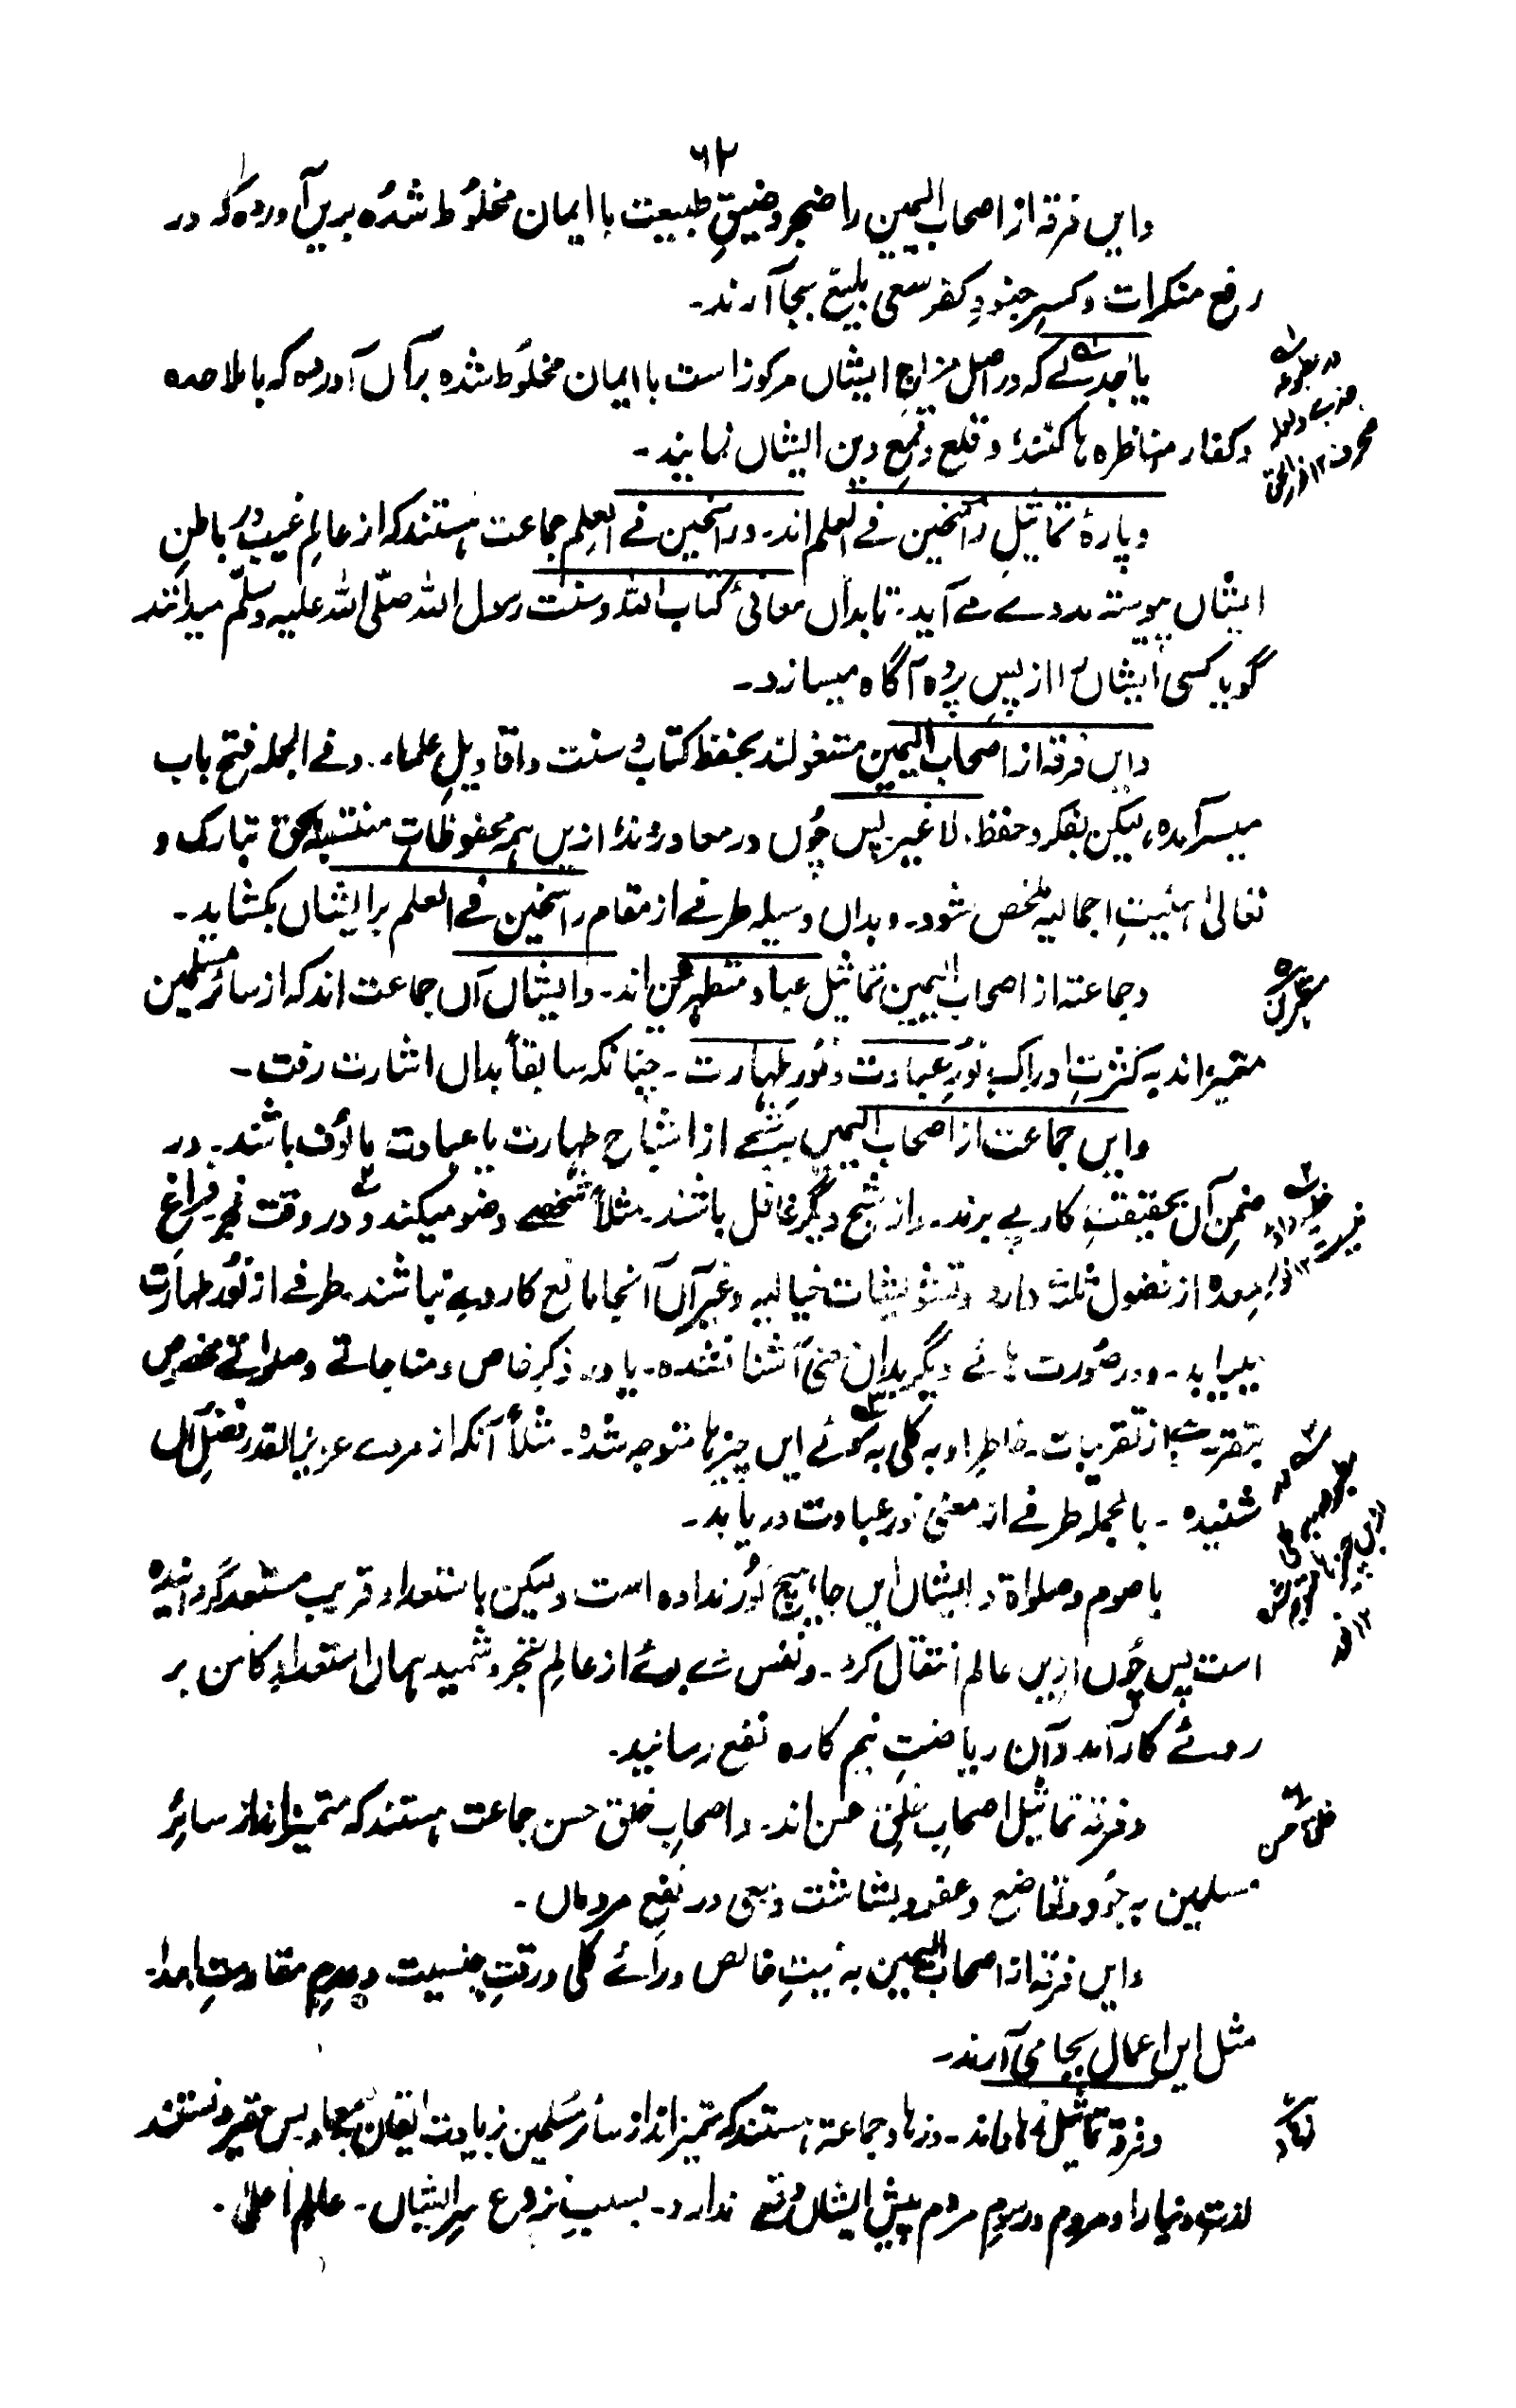 ۶۲
وایں فرقہ از اصحاب الیمین را ضجر و ضیقِ طبیعت با ایمان مخلُوط شدُہ بریں آوردہ کہ در
رفع منکرات و کسرِ جنودِ کفر سعی بلیغ بجا آرند۔
یا جدلے کہ در اصل مزاجِ ایشاں مرکوز است با ایمان مخلوُط شدہ برآں آوردہ کہ با ملاحدہ
و کفار مناظرہ ہا کنند و قلع و قمعِ دین ایشاں نمایند۔
و پارۂ تماثیلِ راسخین فے العلم اند۔ و راسخین فے العِلم جماعت ہستند کہ از عالمِ غیب در باطنِ
ایشاں پیوستہ مددے مے آید۔ تا بداں معانیٔ کتاب اللہ و سنت رسول اللہ صلّی اللہ علیہ وسلّم میدانند
گویا کسی ایشاں را از پسِ پردہ آگاہ میسازد۔
وایں فرقہ از اصحاب الیمین مشغولند بحفظ کتاب و سنت و اقاویلِ علماء۔ و فے الجملہ فتح باب
میسر آمدہ، لیکن بفکر و حفظ۔ لا غیر پس چُوں در معاد روند ازیں ہمہ محفوظاتِ منتسبہ بحق تبارک و
تعالیٰ ہیئیتِ اجمالیہ ملخص شود۔ و بداں وسیلہ طرفے از مقام راسخین فے العلم بر ایشاں بکشاید۔
و جماعتہ از اصحاب الیمین تماثیل عباد متطہرین اند۔ و ایشاں آں جماعت اند کہ از سائر مسلمین
متمیز اند بہ کثرتِ ادراکِ نورِ عبادت و نُورِ طہارت۔ چنانکہ سابقاً بداں اشارت رفت۔
وایں جماعت از اصحاب الیمین بشبحے از اشباحِ طہارت یا عبادت مالُوف باشند۔ در
ضمنِ آں بحقیقتِ کار پے برند۔ و از شبح دیگر غافل باشند۔ مثلاً شخصے وضو میکند و در وقت فراغِ
معدہ از فضول ثلثہ دارد و تشویشات خیالیہ و غیر آں آنجا مانع کار وے نباشند۔ طرفے از نُورِ طہارت
بیابد۔ و در صُورت ہائے دیگر بداں معنیٰ آشنا نشدہ۔ یا در ذکرِ خاص و مناجاتے و صلواتے مخصوص
بتقریبے از تقریبات۔ خاطرِ او بہ کلی بہ سُوئے ایں چیزہا متوجہ شدہ۔ مثلاً آنکہ از مردے عزیز القدر فضل آں
شنیدہ۔ بالجملہ طرفے از معنیٰ نورِ عبادت دریابد۔
با صوم و صلوٰۃ ایشاں ایں جا ہیچ نُور ندادہ است و لیکن باستعداد قریب مستعد گردانیدہ
است پس چُوں ازیں عالم انتقال کرد۔ و نفس وے بوئے از عالمِ تجرد شمید ہماں استعدادِ کامن بر
روئے کار آمد و آن ریاضتِ نیم کارہ نفع رسانید۔
و فرقہ تماثیل اصحابِ خُلقِ حسن اند۔ و اصحابِ خلق حسن جماعت ہستند کہ متمیز اند از سائرِ
مسلمین بہ جُود و تواضع و عفو و بشاشت و سعی در نفعِ مردماں۔
وایں فرقہ از اصحاب الیمین بہ نیتِ خالص و رائے کلی و رقتِ جنسیت و عدمِ مقاومتِ
مثل ایں اعمال بجا می آرند۔
و فرقہ تماثیل زہاد اند۔ و زہاد جماعتہ ہستند کہ متمیز اند از سائر مُسلمین بزیادت ایقان بمعاد پس حقیر دانستند
لذتِ دنیا را و مردم و رسومِ مردم پیش ایشاں وقعے ندارد۔ بسببِ بر ایشاں۔ عالم اعلیٰ۔
خلق حسن
زہاد